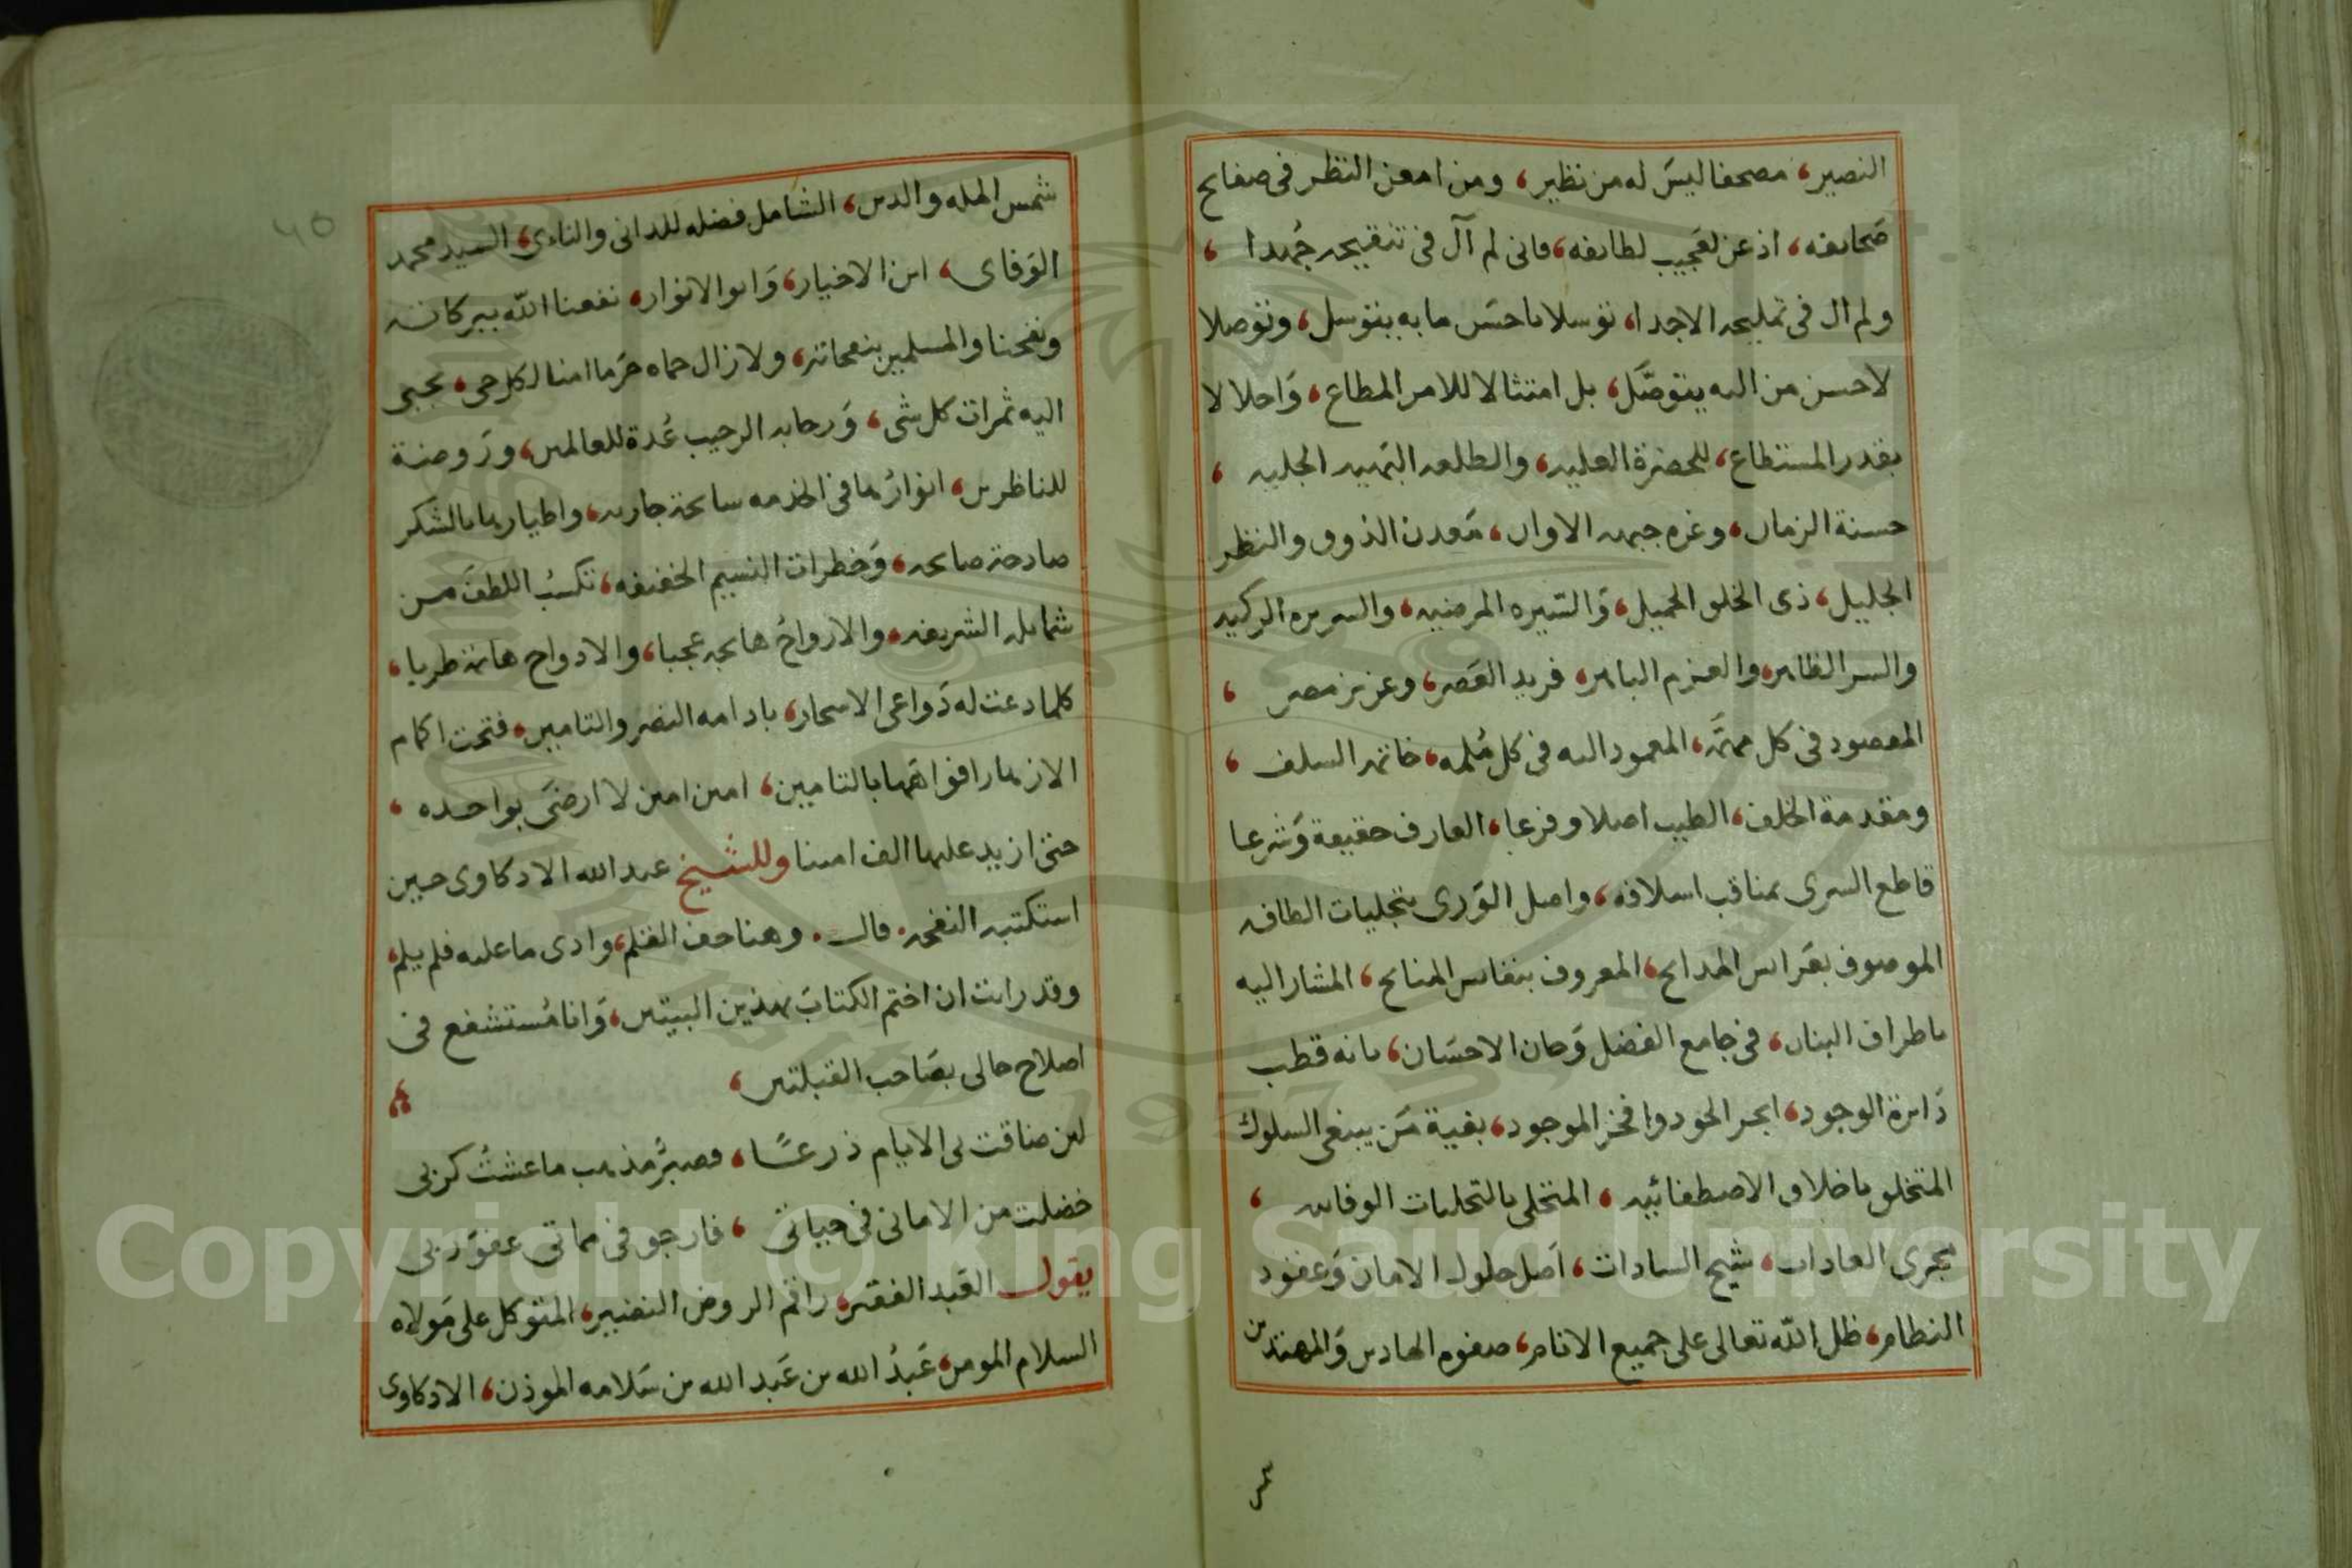 النضير، مصحفا ليس له من نظير، ومن امعن النظر فى صفايح
صحايفه، اذعن لعجيب لطايفه، فانى لم آل فى تنقيحه جُهدا،
ولم ال فى تمليحه الاجدا، توسلا باحسن ما به يتوسل، وتوصلا
لاحسن من اليه يتوصَّل، بل امتثالا للامر المطاع، وَاجلالا
بقدر المستطاع، للحضرة العليه، والطلعه البهيه الجليه،
حسنة الزمان، وغره جبهه الاوان، مَعدن الذوق والنظر
الجليل، ذى الخلق الجميل، وَالسّيره المرضيه، والسريره الزكيه
والسر الظاهر، والعزم الباهر، فريد العَصر، وعزيز مصر،
المقصود فى كل مهمَّه، المعمود اليه فى كل مُلمه، خاتمه السلف،
ومقدمة الخلف، الطيب اصلا وفرعا، العارف حقيقة وَشرعا
قاطع السرى بمناقب اسلافه، واصل الوَرى بتجليات الطافه
الموصوف بعَرايس المدايح، المعروف بنفايس المنايح، المشار اليه
باطراف البنان، فى جامع الفضل وَحان الاحسَان، بانه قطب
دَايرة الوجود، ابحر الجود وافخر الموجود، بغية مَن يبتغى السلوك
المتخلق باخلاق الاصطفائيه، المتحلى بالتحليات الوفايه،
مجرى العادات، شيخ السادات، اَصل حلول الامان وَعقود
النظام، ظل الله تعالى على جميع الانام، صفوه الهادين وَالمهتدين
شمس
شمس المله والدين، الشامل فضله للدانى والناءى، السيد محمد
الوَفاى، ابن الاخيار، وَابو الانوار، نفعنا الله ببركاته
ونفحنا والمسلمين بنفحاته، ولازال حماه حَرَما امنا لكل حى، تجبى
اليه ثمرات كل شى، وَرحابه الرحيب عُدة للعالمين، ورَوضة
للناظرين، انوارُها فى الخدمه سابحة جاريه، واطيارها بالشكر
صادحة صايحه، وَخطرات النسيم الخفيفه، تكسبُ اللطفَ من
شمايله الشريفه، والارواحُ هايجه عجبا، والادواح هايمة طربا،
كلما دعت له دَواعى الاسحار، بادامه النصر والتامين، فتحت اكمام
الازهار افواهَها بالتامين، امين امين لا ارضىَ بواحده،
حتى ازيد عليها الف امينا وللشيخ عبد الله الادكاوى حين
استكتبه النفحه. قال. وهنا جف القلم، وادى ما عليه فلم يلم،
وقد رايت ان اختم الكتابَ بهذين البيتين، وَانا مُستشفع فى
اصلاح حالى بصَاحب القبلتين،
لين ضاقت بى الايام ذرعًا، فصبرُ مذهب ما عشتُ كربى
خضلت من الامانى فى حياتى، فارجو فى مماتى عفوَ ربى
يقول العَبد الفقير، راقم الروض النضير، المتوكل على مَولاه
السلام المومن، عَبدُ الله بن عَبد الله بن سَلامه الموذن، الادكاوى
٤٥
Copyright © King Saud University
1957